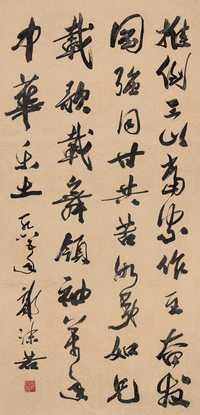 推倒三山當家作主奮發
圖強同甘共苦如兄
載歌載舞領袖萬年
中華樂土
沫若